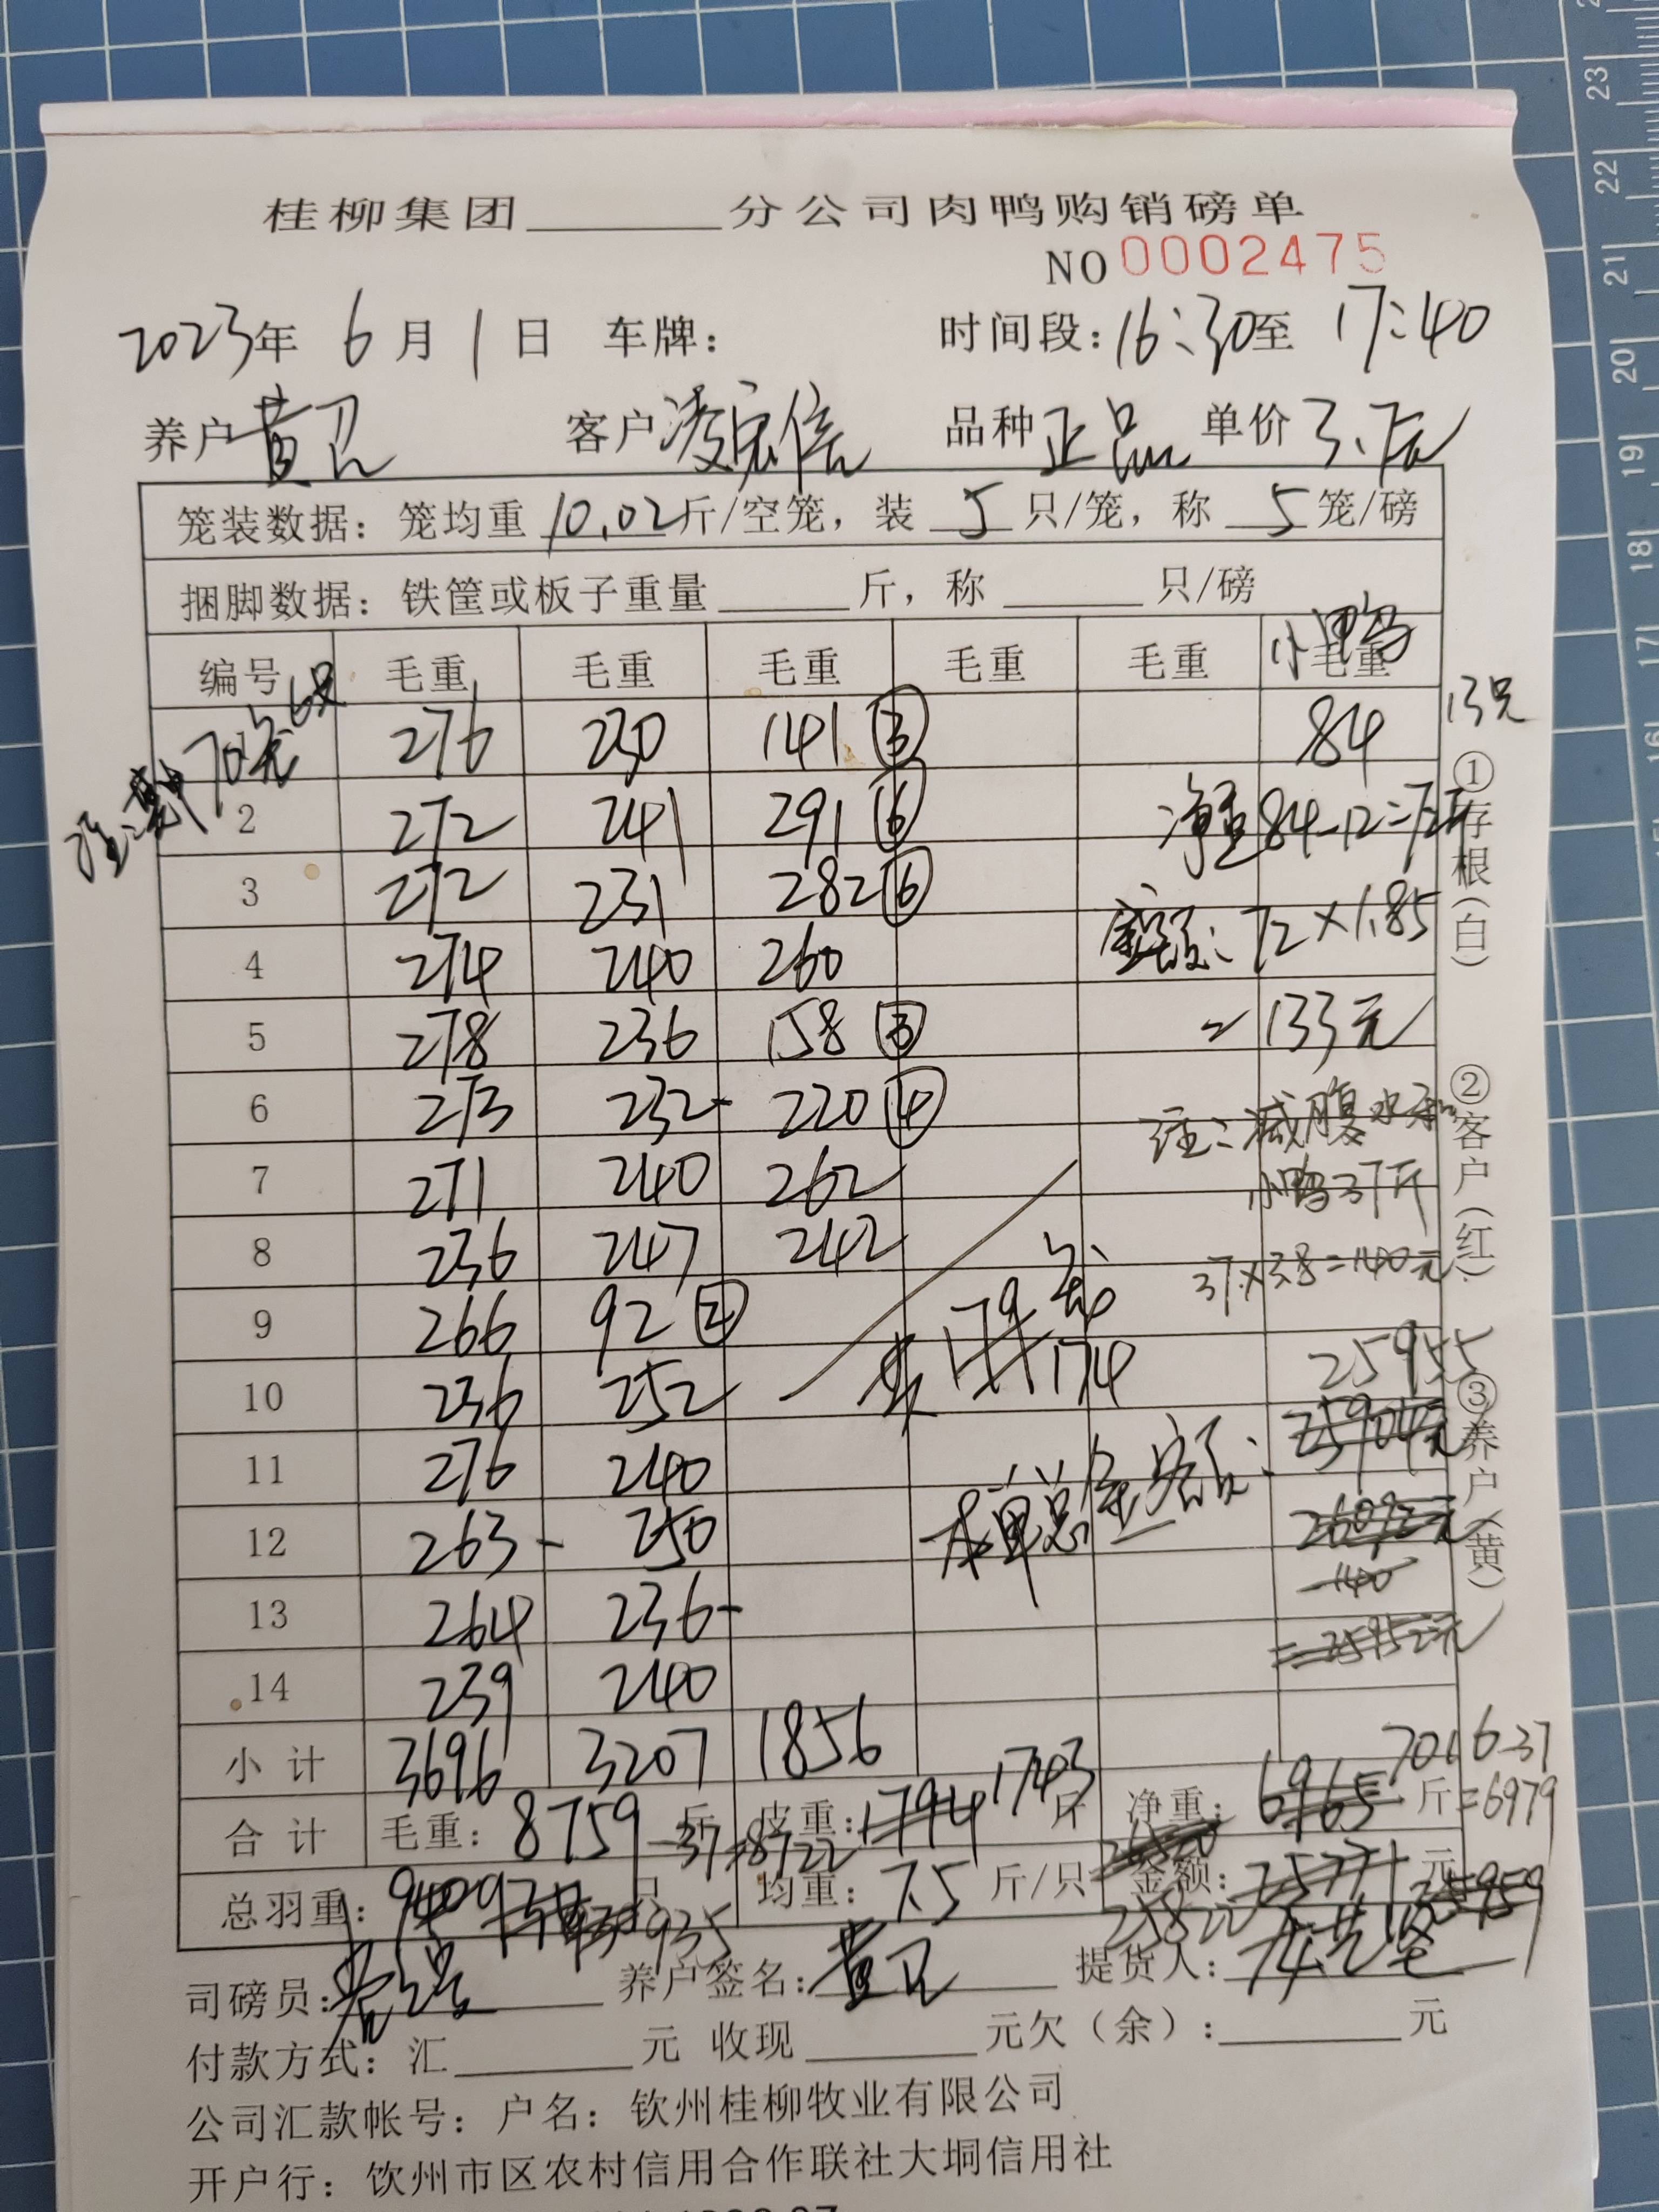 桂柳集团______分公司肉鸭购销磅单
NO 0002475
2023年 6月 1日 车牌： 时间段：16:30至 17:40
养户 黄卫 客户 凌宗信 品种 正品 单价 3.7元
笼装数据：笼均重 10.02斤/空笼，装 5 只/笼，称 5 笼/磅
捆脚数据：铁筐或板子重量______斤，称______只/磅
小鸭
编号 毛重 毛重 毛重 毛重 毛重 毛重
276 230 141 ③ 84 13只
70元 6只
2 272 241 291 ⑥ 净重84-12=72斤
3 272 231 282 ⑥
4 274 240 260 金额：72×1.85
5 278 236 158 ③ =133元
6 273 232- 220 ④ 注：减腹水和
7 271 240 262 小鸭37斤
8 236 247 242 37×3.8=140元
9 266 92 ② 179
10 236 252 174 25955
25904元
11 276 240 本单总金额：
12 263- 250 26092元
-140
13 264 236- =25952元
14 239 240
小计 3696 3207 1856 7016-37
合计 毛重：8759斤 -37=8722 皮重：1794 1743斤 净重：6965斤 =6979
总羽重：940 935只 均重：7.5斤/只 金额：25771元
25822 25959
司磅员： 养户签名：黄卫 提货人：
付款方式：汇______元 收现______元欠（余）：______元
公司汇款帐号：户名：钦州桂柳牧业有限公司
开户行：钦州市区农村信用合作联社大垌信用社
①存根（白）
②客户（红）
③养户（黄）